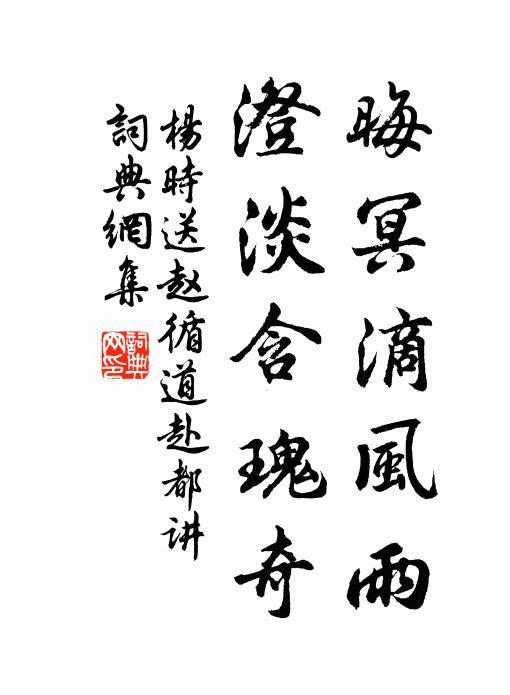 晦冥滴風雨
澄淡含瑰奇
楊時送赵循道赴都讲
詞典網集
詞典网印